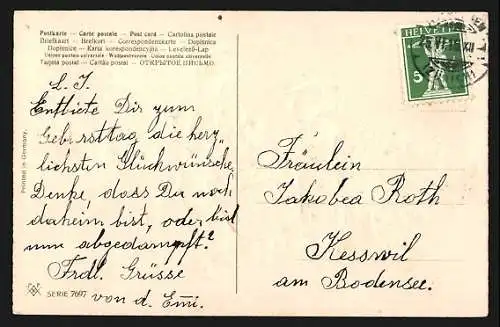 Postkarte – Carte postale – Post card – Cartolina postale
Briefkaart – Brefkort – Correspondenzkarte – Dopisnice
Dopisnice – Karta korespondencyjna – Levelező-Lap
Union postale universelle – Weltpostverein – Unione postale universale
Tarjeta postal – Cartão postal – ОТКРЫТОЕ ПИСЬМО
HELVETIA
5
L. J.
Entbiete Dir zum
Geburtstag die herz-
lichsten Glückwünsche.
Denke, dass Du noch
daheim bist, oder bist
nun abgedampft?
Frdl. Grüsse
von d. Emi.
Fräulein
Jakobea Roth
Kesswil
am Bodensee.
Printed in Germany.
SERIE 7697